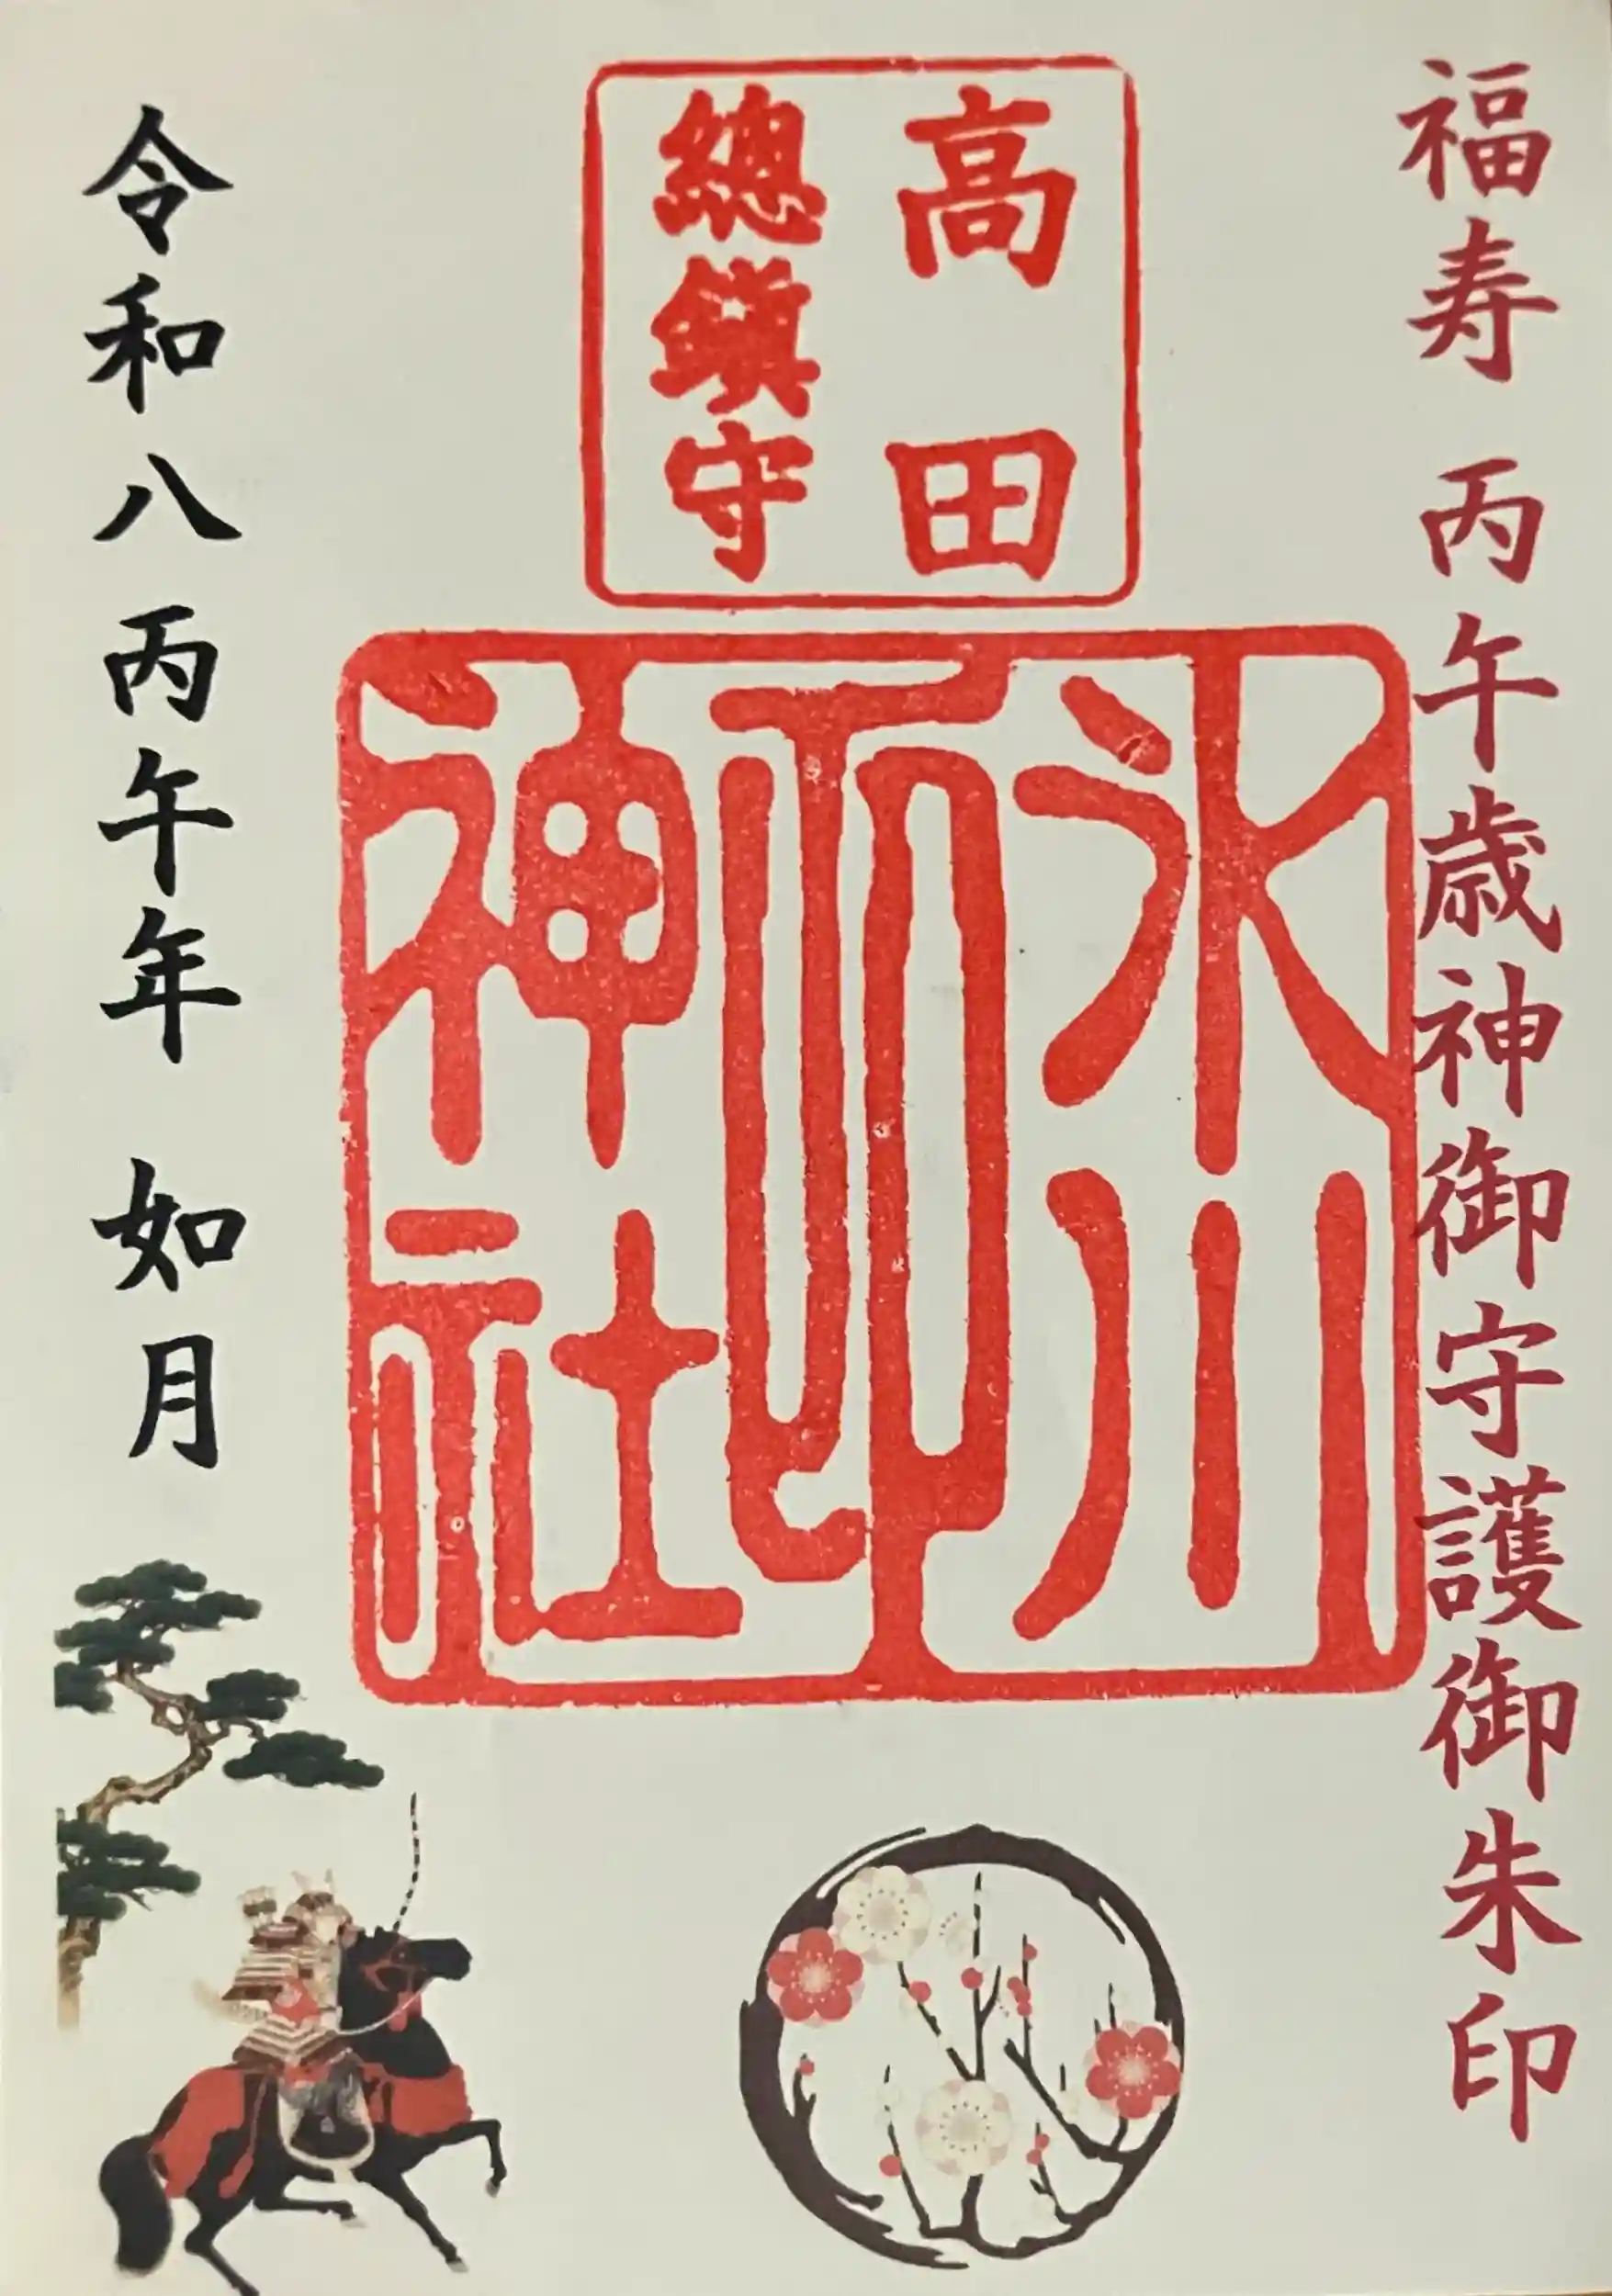 福寿 丙午歳神御守護御朱印
高田
總鎮守
氷川
神社
令和八丙午年 如月